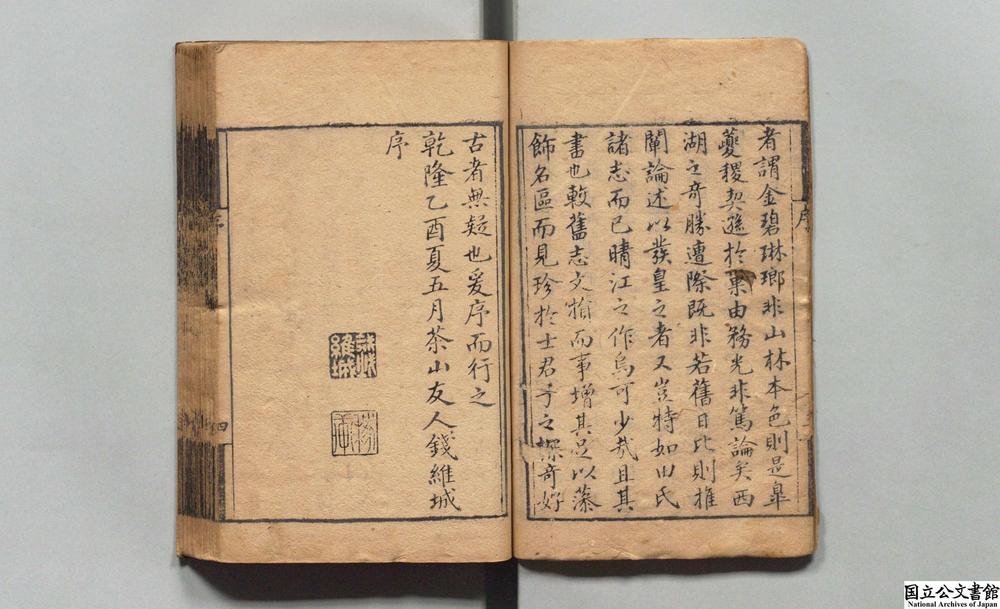 者謂金碧琳瑯非山林本色則是皐
夔稷契遜於巢由務光非篤論矣西
湖之奇勝遭際既非若舊日比則推
闡論述以發皇之者又豈特如田氏
諸志而已晴江之作烏可少哉且其
書也較舊志文損而事增其足以藻
飾名區而見珍於士君子之探奇好
古者無疑也爰序而行之
乾隆乙酉夏五月茶山友人錢維城
序
序
三
序
四
国立公文書館
National Archives of Japan